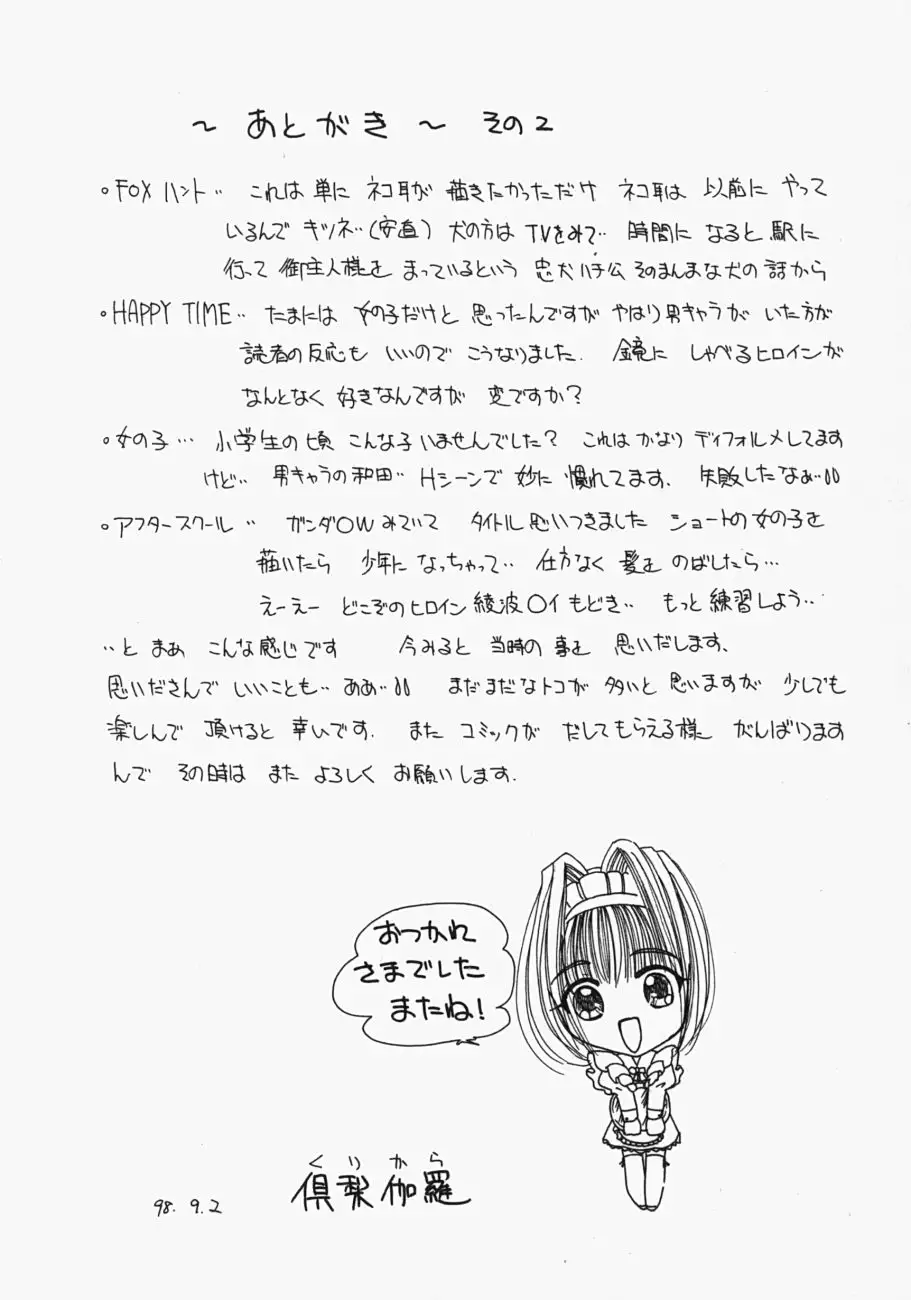 ～ あとがき ～ その2
。FOXハント‥ これは単に ネコ耳が 描きたかっただけ ネコ耳は 以前に やって
いるんで キツネ‥(安直) 犬の方は TVをみて‥ 時間に なると 駅に
行って 御主人様を まっているという 忠犬ハチ公 そのまんまな犬の話から
・HAPPY TIME‥ たまには 女の子だけと 思ったんですが やはり男キャラが いた方が
読者の反応も いいので こうなりました. 鏡に しゃべるヒロインが
なんとなく 好きなんですが 変ですか?
。女の子… 小学生の頃 こんな子いませんでした? これは かなり ディフォルメしてます
けど‥ 男キャラの和田‥ Hシーンで 妙に 慣れてます. 失敗したなぁ‥
。アフタースクール ‥ ガンダ○W みていて タイトル思いつきました ショートの女の子を
描いたら 少年に なっちゃって‥ 仕方なく 髪を のばしたら…
えーえー どこぞのヒロイン 綾波○イもどき‥ もっと 練習しよう‥
‥と まぁ こんな感じです 今みると 当時の 事を 思いだします.
思いださんで いいことも‥ ああ‥ まだまだなトコが 多いと 思いますが 少しでも
楽しんで 頂けると 幸いです. また コミックが だしてもらえる様 がんばります
んで その時は また よろしく お願いします.
おつかれ
さまでした
またね!
くりから
倶梨伽羅
98. 9. 2